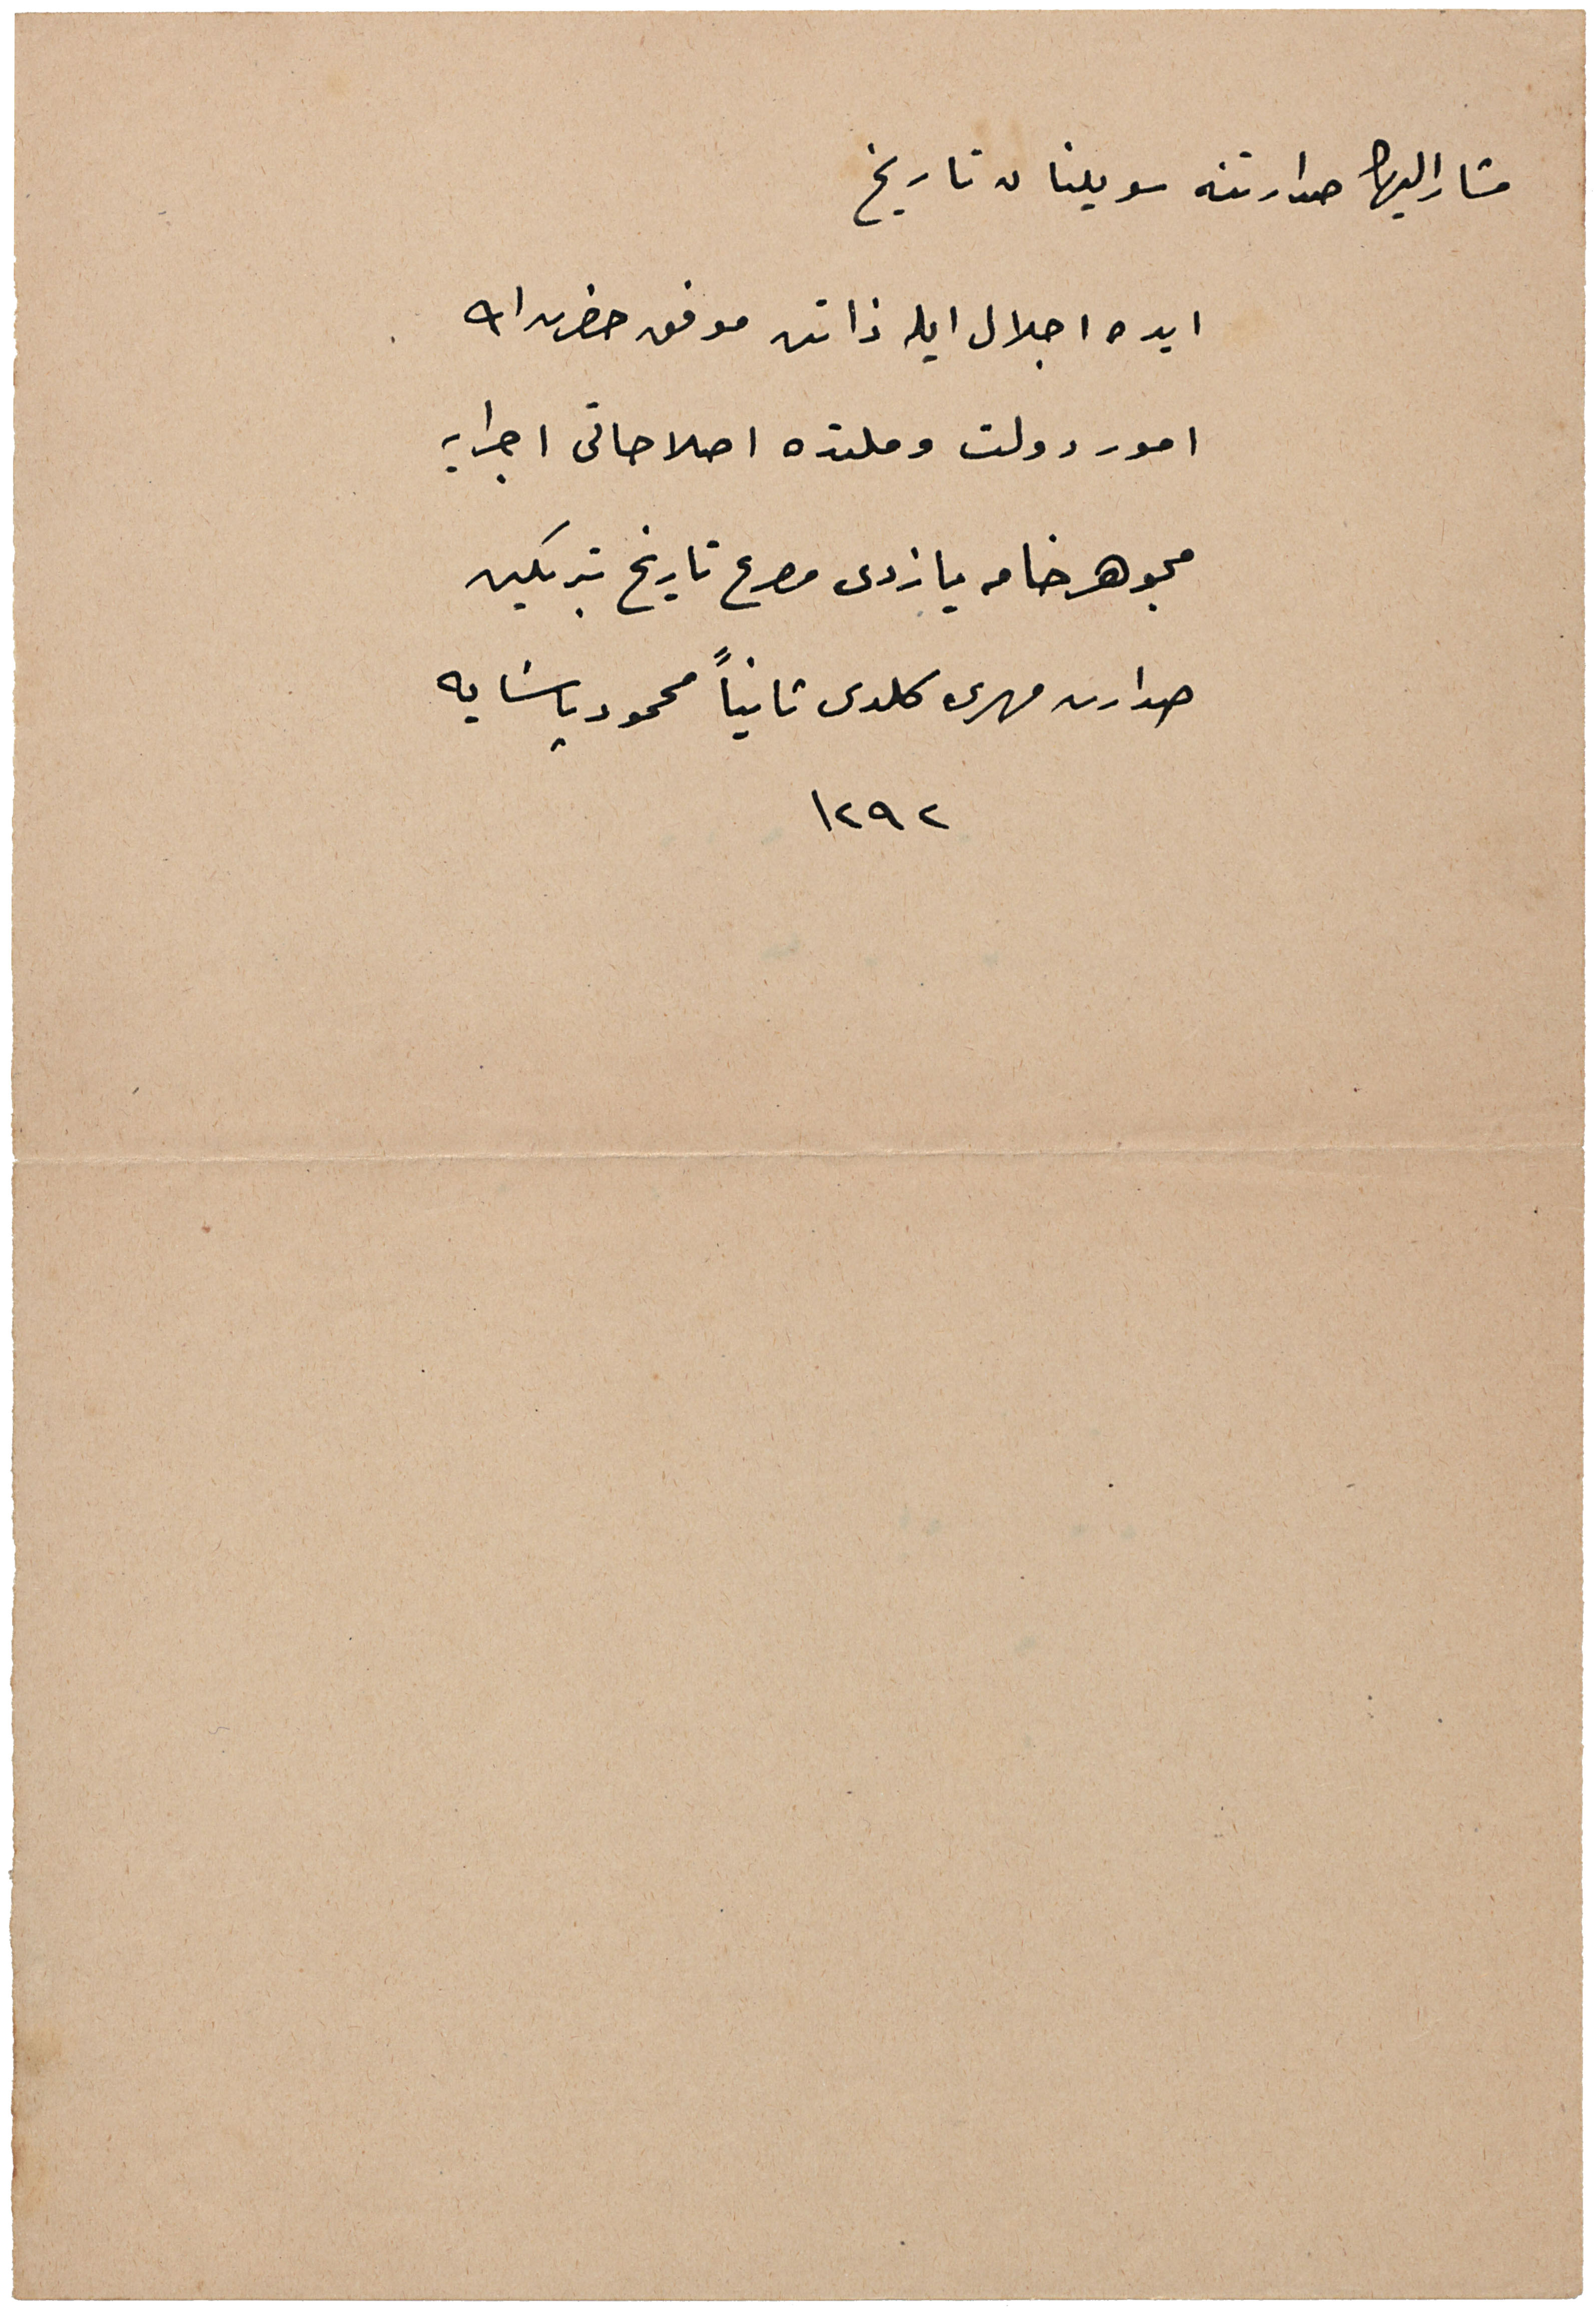 مشار اليهك صدارتنه سويلنان تاريخ
ايده اجلال ايله ذاتن موفق حضرت الله
امور دولت و ملتده اصلاحاتى اجرايه
مجوهر خامه يازدى مصرع تاريخ تبريكين
صدارت مهرى كلدى ثانياً محمود پاشايه
١٢٩٢